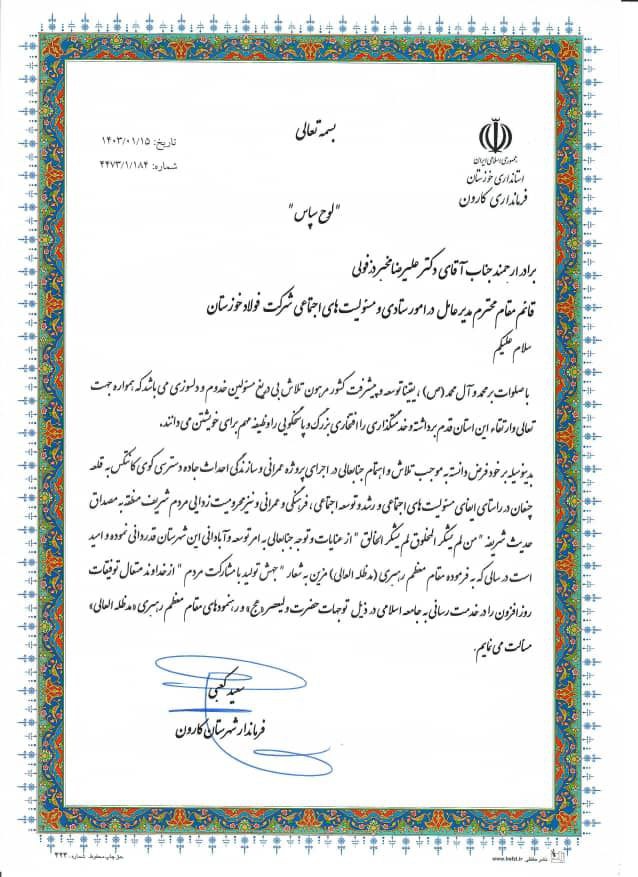 بسمه تعالی
جمهوری اسلامی ایران
استانداری خوزستان
فرمانداری کارون
تاریخ: ۱۴۰۳/۰۱/۱۵
شماره: ۴۴۷۳/۱/۱۸۴
"لوح سپاس"
برادر ارجمند جناب آقای دکتر علیرضا مخبر دزفولی
قائم مقام محترم مدیر عامل در امور ستادی و مسئولیت های اجتماعی شرکت فولاد خوزستان
سلام علیکم
با صلوات بر محمد و آل محمد (ص) ، یقینا توسعه و پیشرفت کشور مرهون تلاش بی دریغ مسئولین خدوم و دلسوزی می باشد که همواره جهت
تعالی و ارتقاء این استان قدم برداشته و خدمتگذاری را افتخاری بزرگ و پاسخگویی را وظیفه مهم برای خویشتن می دانند.
بدینوسیله بر خود فرض دانسته به موجب تلاش و اهتمام جنابعالی در اجرای پروژه عمرانی و سازندگی احداث جاده دسترسی کوی کانتکس به قلعه
چنعان در راستای ایفای مسئولیت های اجتماعی و رشد و توسعه اجتماعی ، فرهنگی و عمرانی و نیز محرومیت زدایی مردم شریف منطقه به مصداق
حدیث شریفه "من لم یشکر المخلوق لم یشکر الخالق" از عنایات و توجه جنابعالی به امر توسعه و آبادانی این شهرستان قدردانی نموده و امید
است در سالی که به فرموده مقام معظم رهبری (مدظله العالی) مزین به شعار "جهش تولید با مشارکت مردم" از خداوند متعال توفیقات
روز افزون را در خدمت رسانی به جامعه اسلامی در ذیل توجهات حضرت ولیعصر «عج» و رهنمودهای مقام معظم رهبری «مدظله العالی»
مسالت می نمایم.
سعید کعبی
فرماندار شهرستان کارون
نشر حافظی www.hafzi.ir
حق چاپ محفوظ. شماره: ۴۲۳